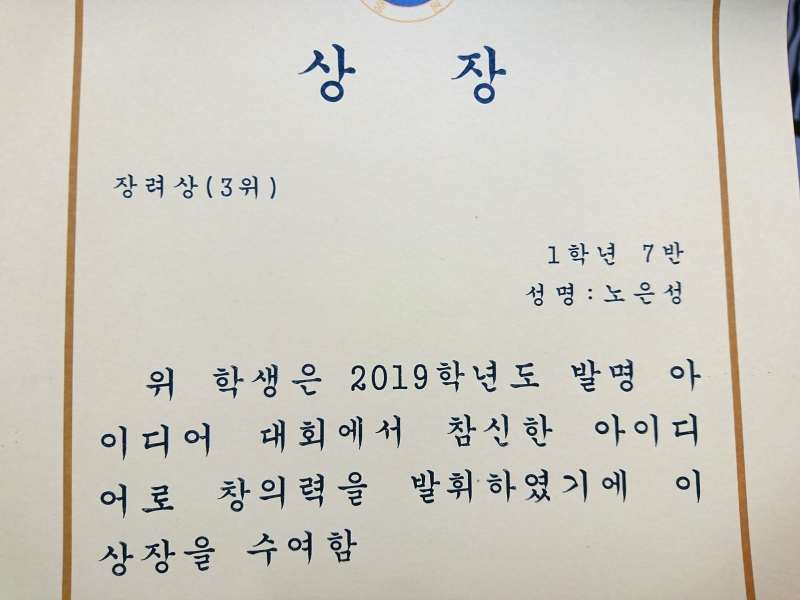 상 장
장려상(3위)
1학년 7반
성명:노은성
위 학생은 2019학년도 발명 아
이디어 대회에서 참신한 아이디
어로 창의력을 발휘하였기에 이
상장을 수여함